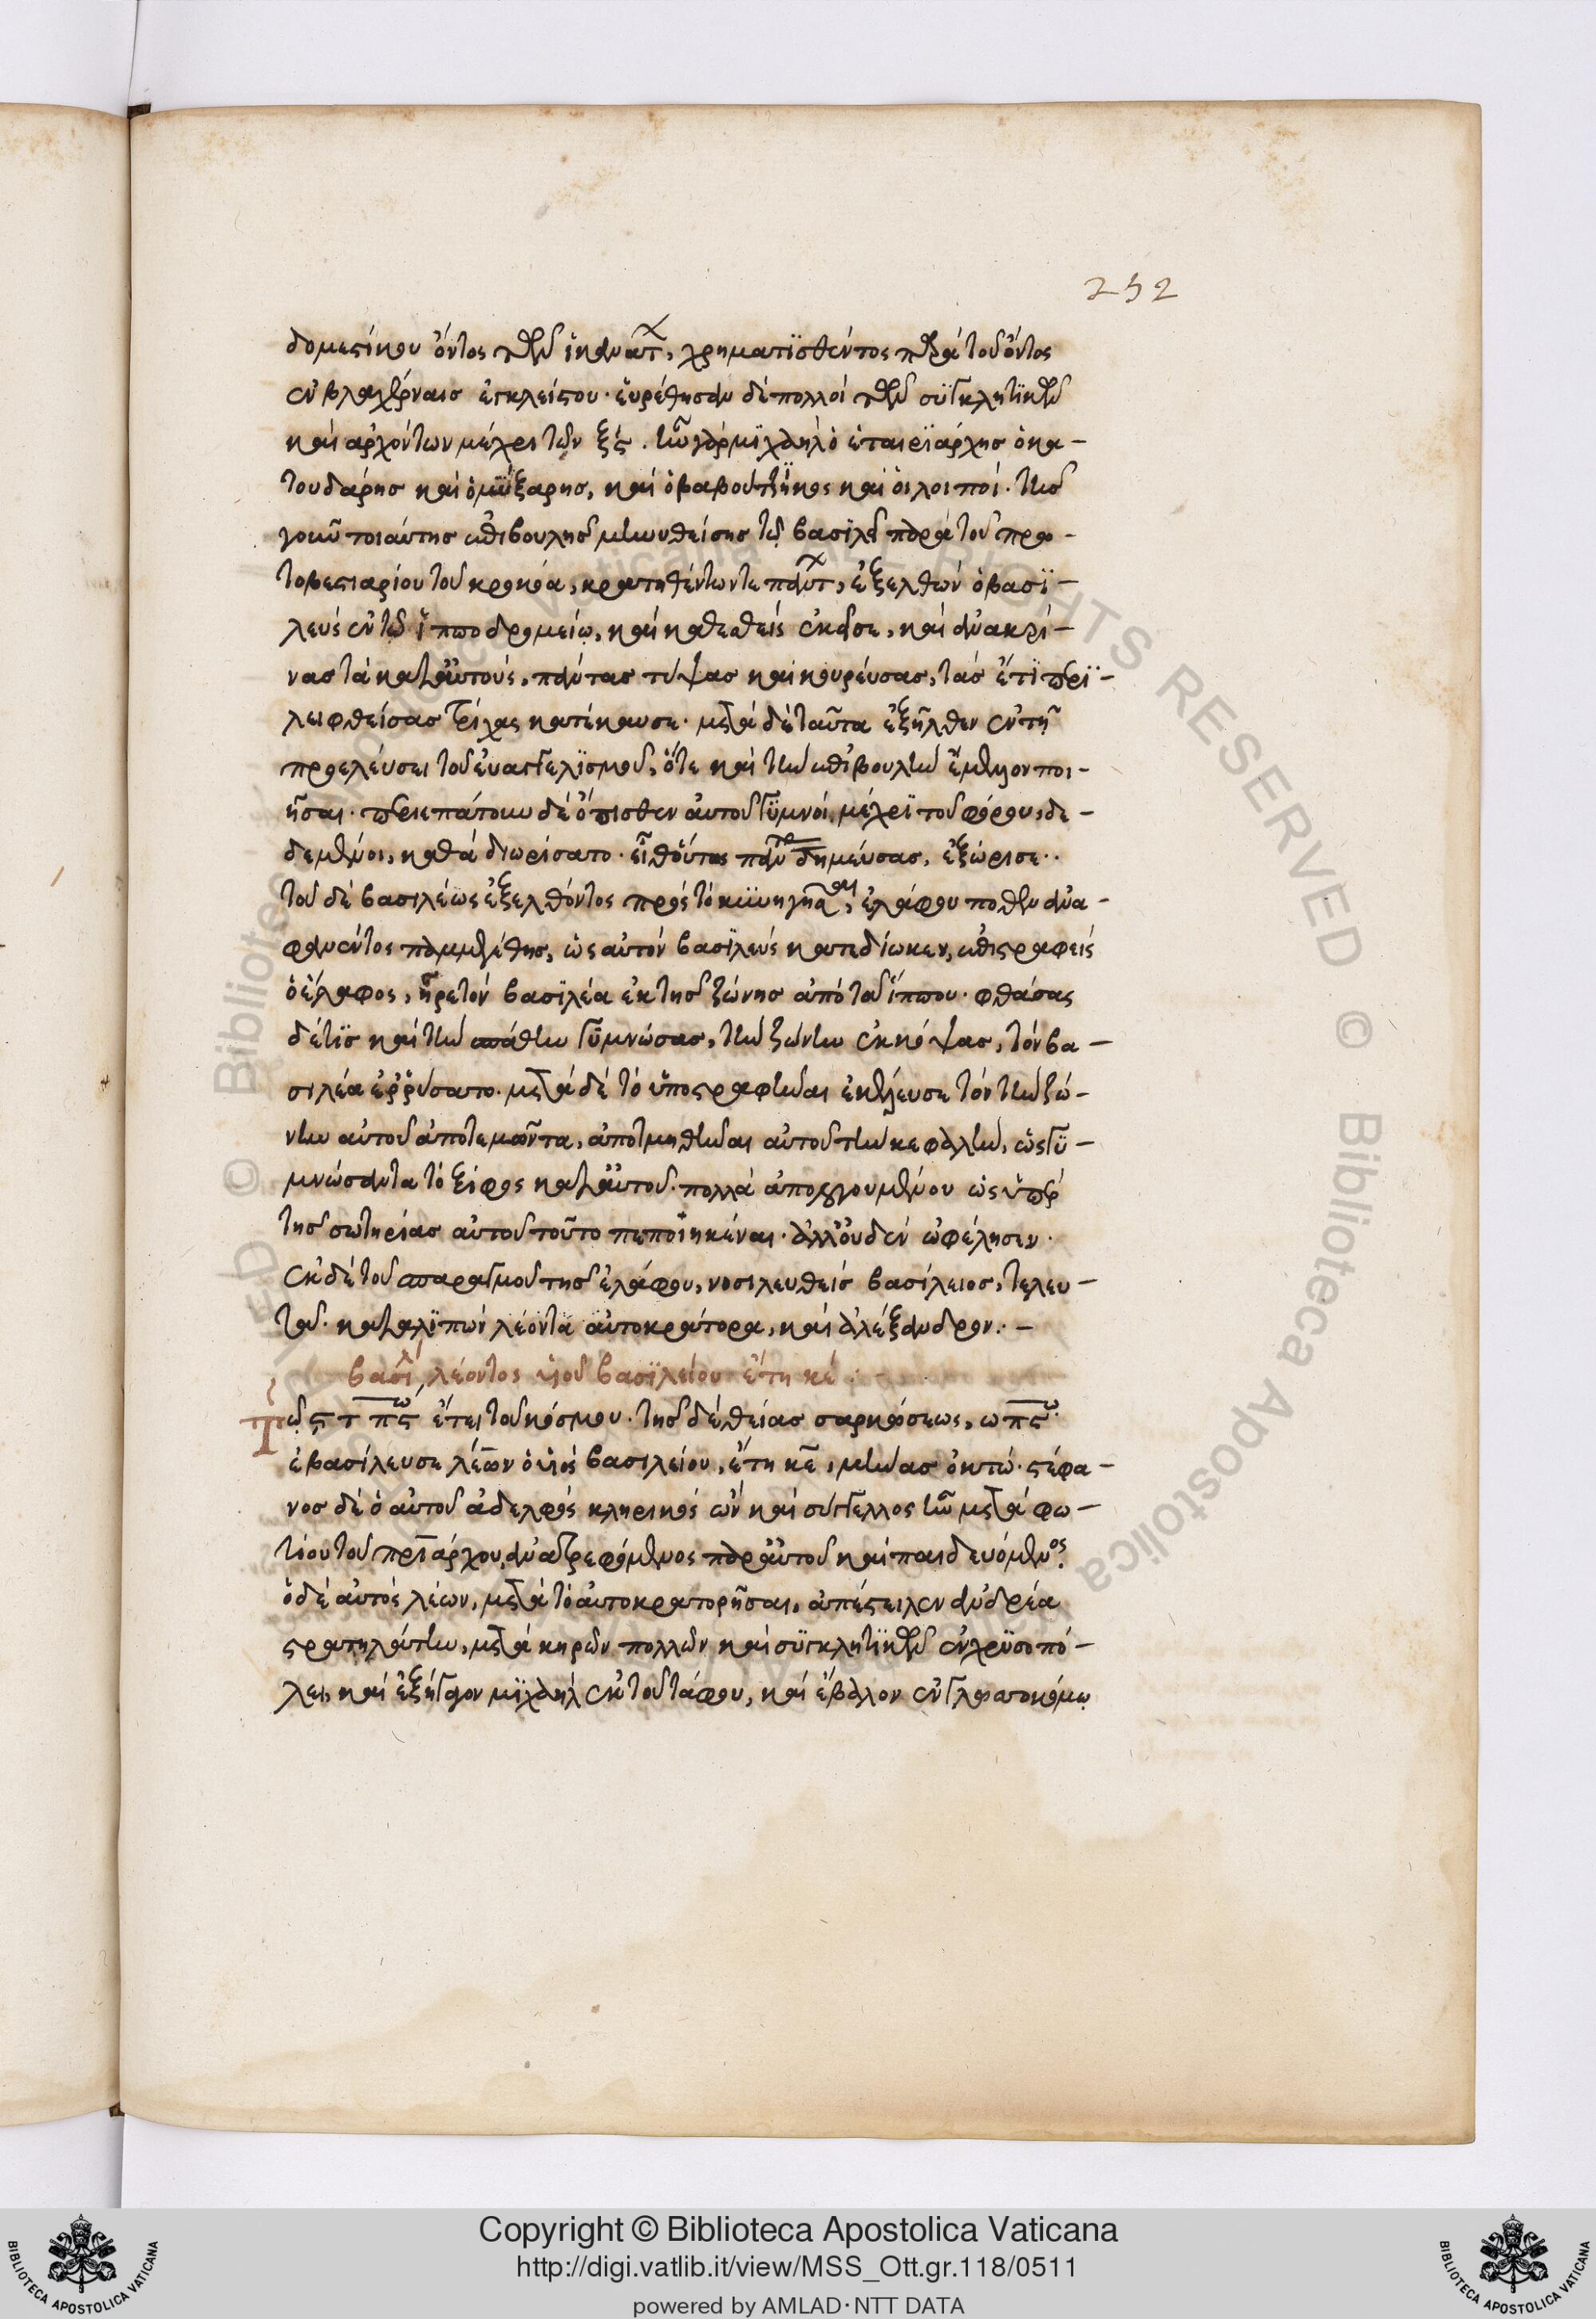 252
δομεστίκου ὄντος τῶν ἱκανάτ, χρηματϊσθέντος παρὰ τοῦ ὄντος
ἐν βλαχέρναις ἐγκλείστου· εὑρέθησαν δὲ πολλοὶ τῶν συϊγκλητϊκῶν
καὶ αρχόντων μέχρι τῶν ξϛ. ἦν γὰρ μϊχαὴλ ὁ ἑταιρϊάρχης ὁ κα-
τουδάρης καὶ ὁ μϋξάρης, καὶ ὁ βαβούτζϊκος καὶ οἱ λοιποί. τῆς
γοῦν τοιαύτης ἐπιβουλῆς μηνυθείσης τῷ βασϊλεῖ παρὰ τοῦ πρω-
τοβεστιαρίου τοῦ κροκόα, κρατηθέντων τε πάντ, ἐξελθὼν ὁ βασϊ-
λεὺς ἐν τῷ ἱπποδρομείω, καὶ καθεσθεὶς ἐκεῖσε, καὶ ἀνακρί-
νας τὰ κατ' αὐτοὺς, πάντας τύψας καὶ κουρεύσας, τὰς ἔτϊ περϊ-
λειφθείσας τρίχας κατέκαυσε· μετὰ δὲ ταῦτα ἐξῆλθεν ἐν τῇ
προελεύσει τοῦ εὐαγγελϊσμοῦ, ὅτε καὶ τὴν ἐπιβουλὴν ἔμελλον ποι-
ῆσαι· περιεπάτουν δὲ ὄπισθεν αὐτοῦ γϋμνοὶ, μέχρϊ τοῦ φόρου, δε-
δεμένοι, καθὰ διωρίσατο· εἶθ' οὕτως πάν δημεύσας, ἐξώρισε·
τοῦ δὲ βασιλέως ἐξελθόντος πρὸς τὸ κϋνηγῆσαι, ἐλάφου ποθὲν ἀνα-
φανέντος παμμεγέθης, ὡς αὐτὸν βασϊλεὺς κατεδίωκεν, ἐπιστραφεὶς
ὁ ἔλαφος, ἦρε τὸν βασϊλέα ἐκ τῆς ζώνης ἀπὸ τοῦ ἵππου· φθάσας
δέ τϊς καὶ τὴν σπάθην γϋμνώσας, τὴν ζώνην ἐκκόψας, τὸν βα-
σιλέα ἐρρύσατο· μετὰ δὲ τὸ ὑποστραφῆναι ἐκέλευσε τὸν τὴν ζώ-
νην αὐτοῦ ἀποτεμόντα, ἀποτμηθῆναι αὐτοῦ τὴν κεφαλὴν, ὡς γϋ-
μνώσαντα τὸ ξίφος κατ' αὐτοῦ· πολλὰ ἀπολογουμένου ὡς ὑπὲρ
τῆς σωτηρίας αὐτοῦ τοῦτο πεποιηκέναι· ἀλλ' οὐδὲν ὠφέλησεν·
ἐκ δὲ τοῦ σπαραγμοῦ τῆς ἐλάφου, νοσιλευθεὶς βασίλειος, τελευ-
τᾶ· καταλϊπὼν λέοντα αὐτοκράτορα, καὶ ἀλέξανδρον·-
βασϊλ, λέοντος υἱοῦ βασϊλείου ἔτη κέ
Τῷ ϛτπϛω ἔτει τοῦ κόσμου· τῆς δὲ θείας σαρκώσεως, ωπϛω·
ἐβασίλευσε λέων ὁ υἱὸς βασιλείου, ἔτη κε, μῆνας ὀκτώ· στέφα-
νος δὲ ὁ αὐτοῦ ἀδελφὸς κληρικὸς ὢν καὶ σύγγελλος ἦν μετὰ φω-
τίου τοῦ πριάρχου, ἀνατρεφόμενος παρ' αὐτοῦ καὶ παιδευόμενος.
ὁ δὲ αὐτὸς λέων, μετὰ τὸ αὐτοκρατορῆσαι, ἀπέστειλεν ἀνδρέα
στρατηλάτην, μετὰ κηρῶν πολλῶν καὶ συϊγκλητϊκῶν ἐν χρϋσοπό-
λει, καὶ ἐξήγαγον μϊχαὴλ ἐκ τοῦ τάφου, καὶ ἔβαλον ἐν γλωσσοκόμω
Copyright © Biblioteca Apostolica Vaticana
http://digi.vatlib.it/view/MSS_Ott.gr.118/0511
powered by AMLAD·NTT DATA